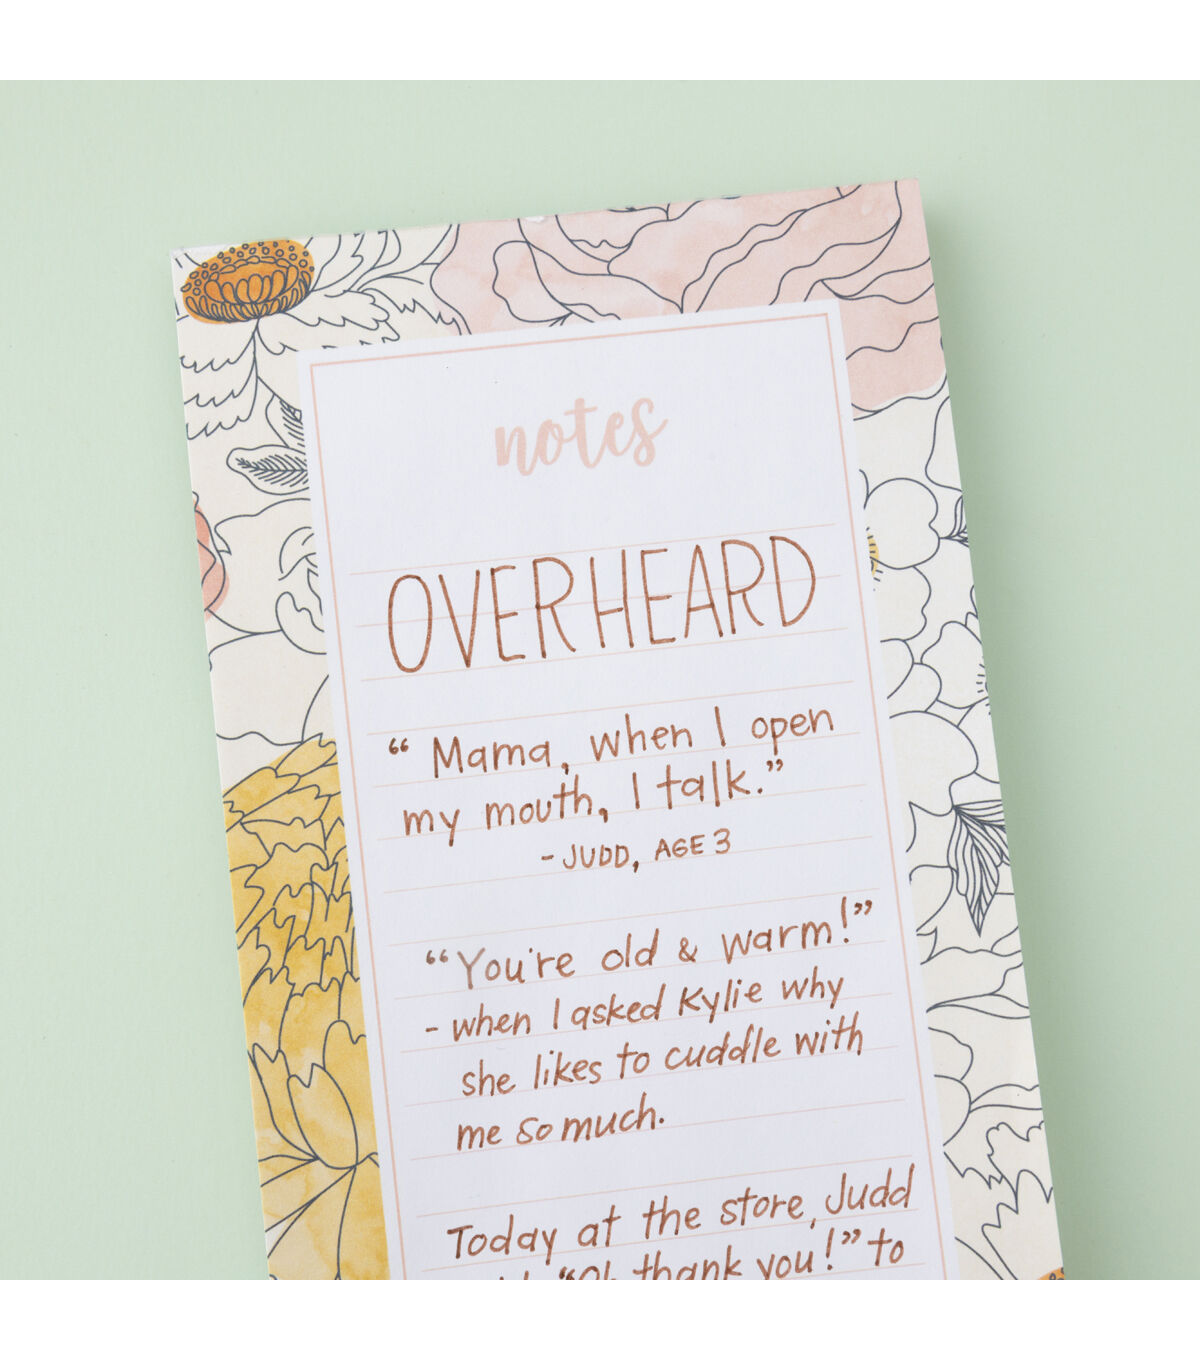 notes
OVERHEARD
“ Mama, when I open
my mouth, I talk.”
- JUDD, AGE 3
“You're old & warm!”
- when I asked Kylie why
she likes to cuddle with
me so much.
Today at the store, Judd
“Oh thank you!” to